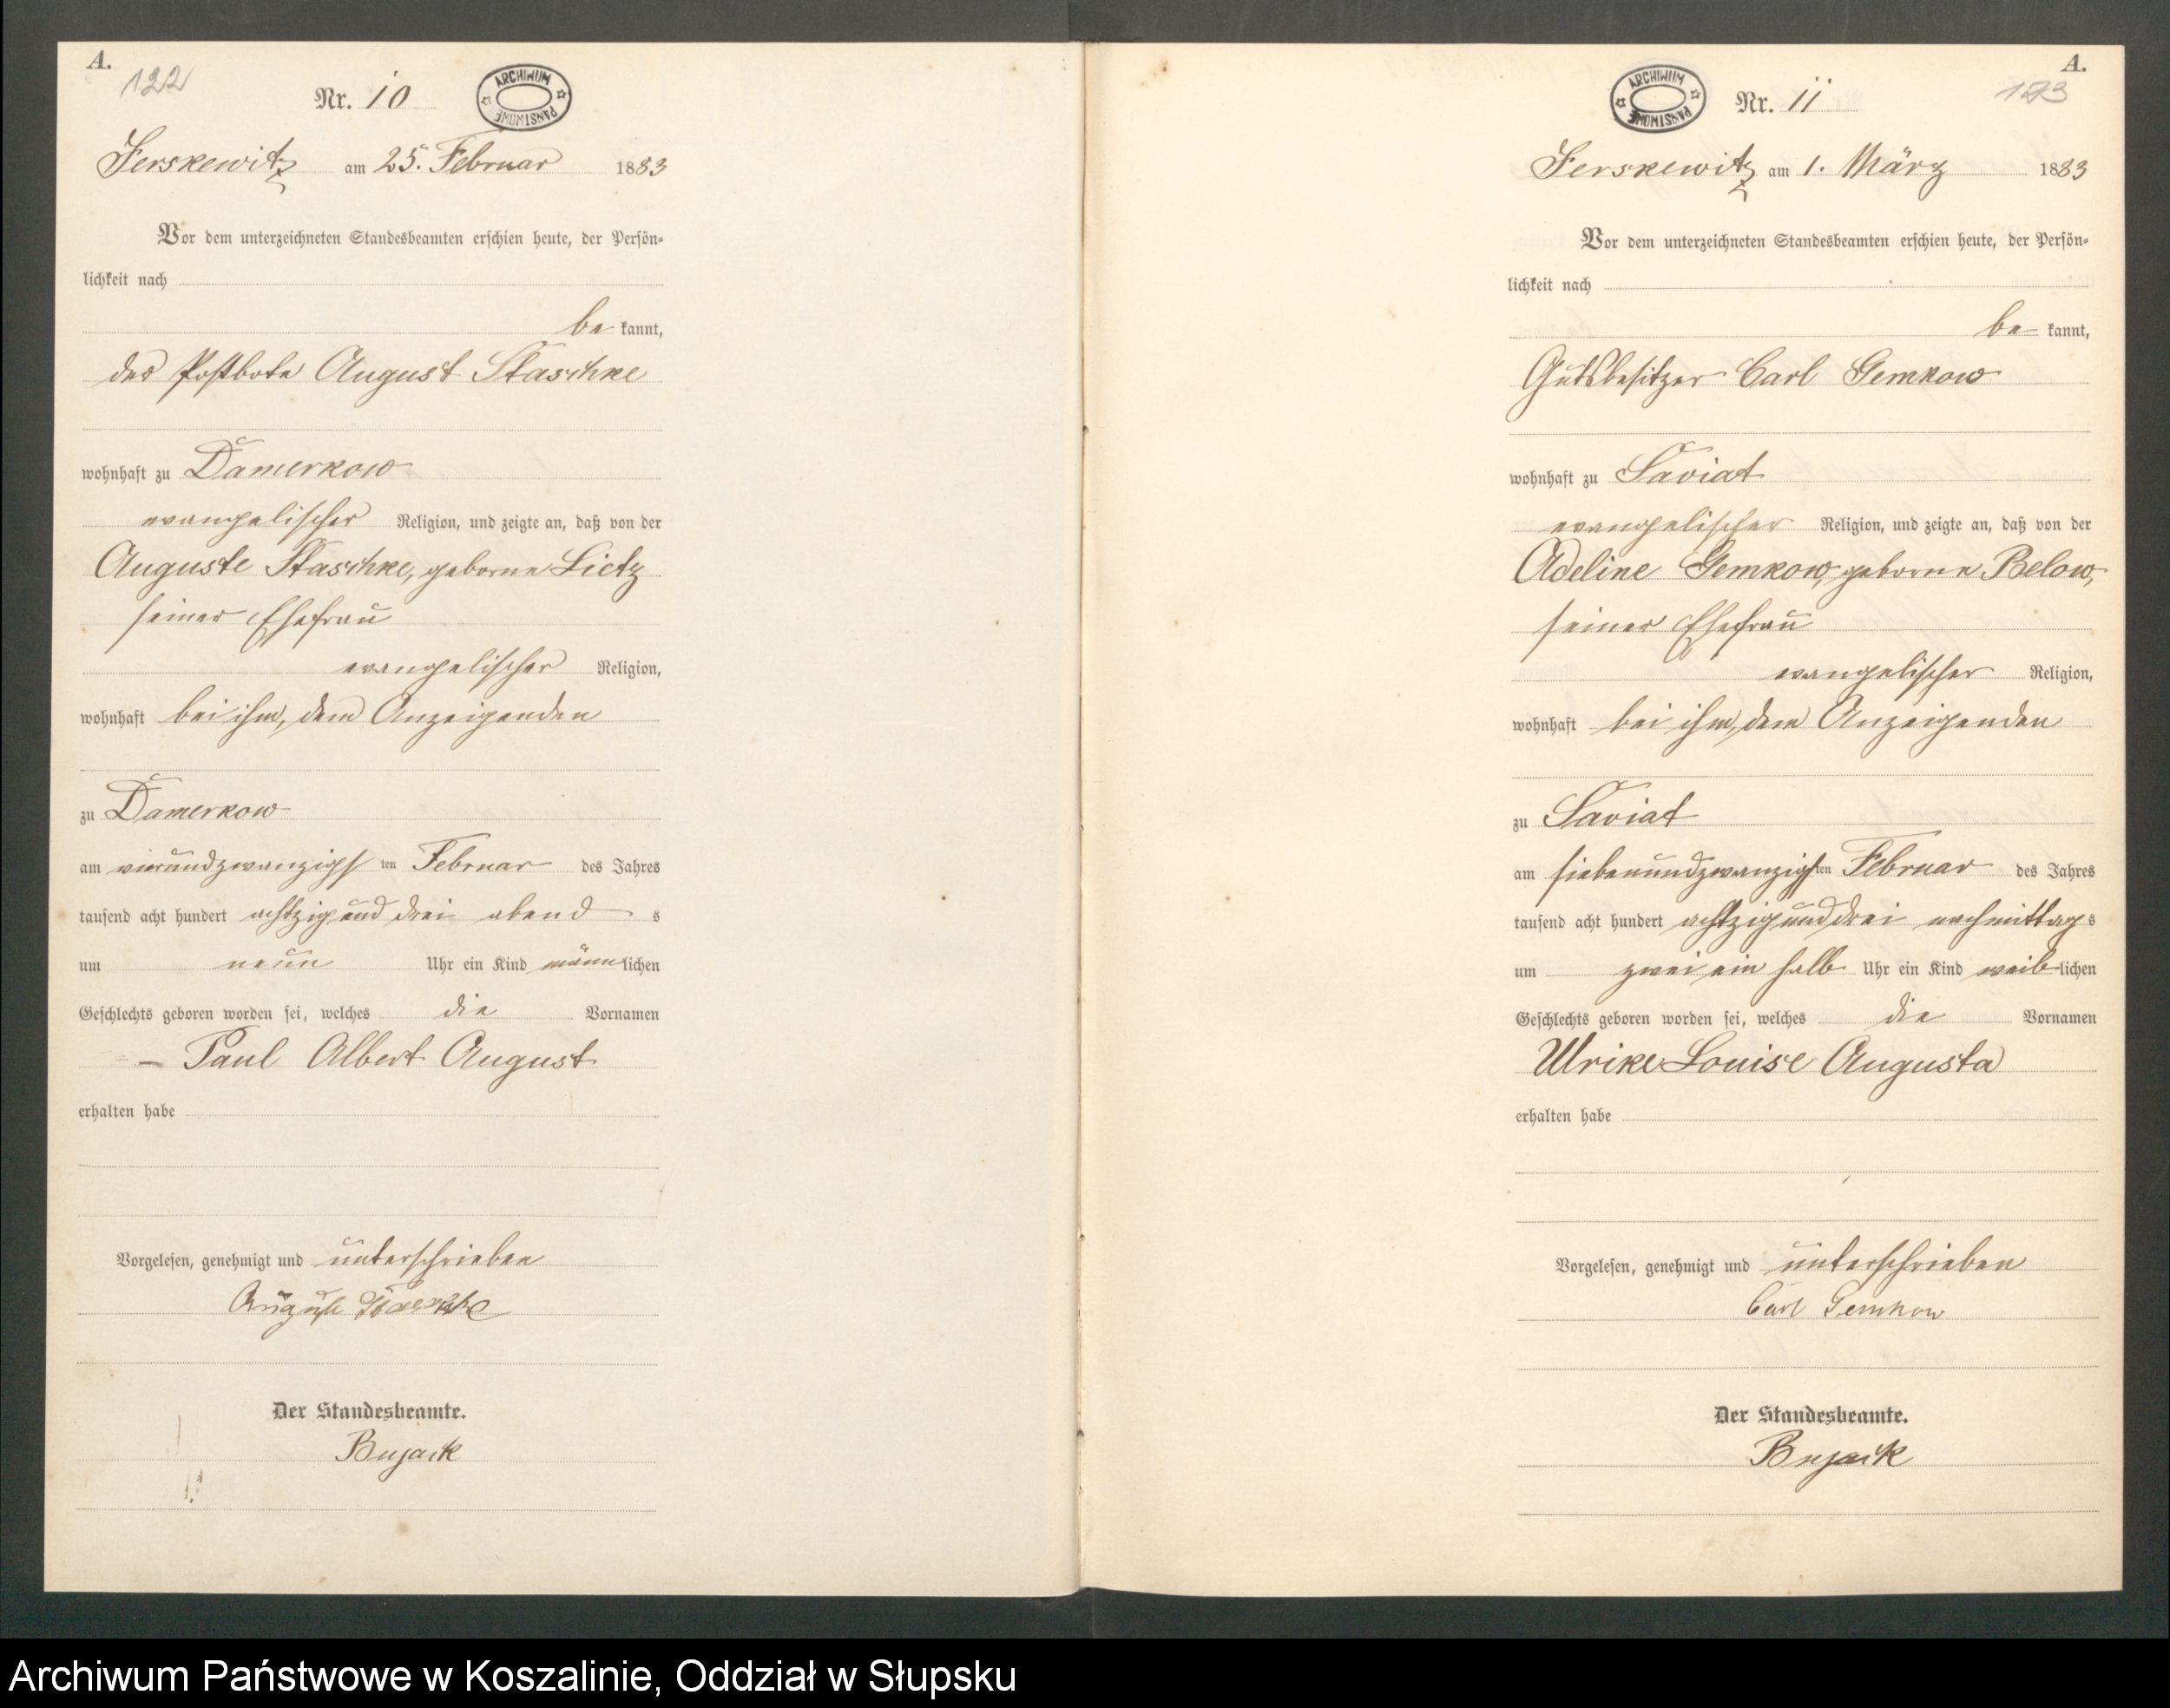 A.
122
Nr. 10
ARCHIWUM PAŃSTWOWE
Jerskewitz am 25. Februar 1883
Vor dem unterzeichneten Standesbeamten erschien heute, der Persön-
lichkeit nach
be kannt,
der Postbote August Staschke
wohnhaft zu Damerkow
evangelischer Religion, und zeigte an, daß von der
Auguste Staschke, geborne Lietz
seiner Ehefrau
evangelischer Religion,
wohnhaft bei ihm, dem Anzeigenden
zu Damerkow
am vierundzwanzigst ten Februar des Jahres
tausend acht hundert achtzig und drei abend s
um neun Uhr ein Kind männ lichen
Geschlechts geboren worden sei, welches die Vornamen
– Paul Albert August
erhalten habe
Vorgelesen, genehmigt und unterschrieben
August Staschke
Der Standesbeamte.
Bujack
A.
123
ARCHIWUM PAŃSTWOWE
Nr. 11
Jerskewitz am 1. März 1883
Vor dem unterzeichneten Standesbeamten erschien heute, der Persön-
lichkeit nach
be kannt,
Gutsbesitzer Carl Gemkow
wohnhaft zu Saviat
evangelischer Religion, und zeigte an, daß von der
Adeline Gemkow, geborne Below,
seiner Ehefrau
evangelischer Religion,
wohnhaft bei ihm, dem Anzeigenden
zu Saviat
am siebenundzwanzigst ten Februar des Jahres
tausend acht hundert achtzig und drei nachmittag s
um zwei ein halb Uhr ein Kind weib lichen
Geschlechts geboren worden sei, welches die Vornamen
Ulrike Louise Augusta
erhalten habe
Vorgelesen, genehmigt und unterschrieben
Carl Gemkow
Der Standesbeamte.
Bujack
Archiwum Państwowe w Koszalinie, Oddział w Słupsku